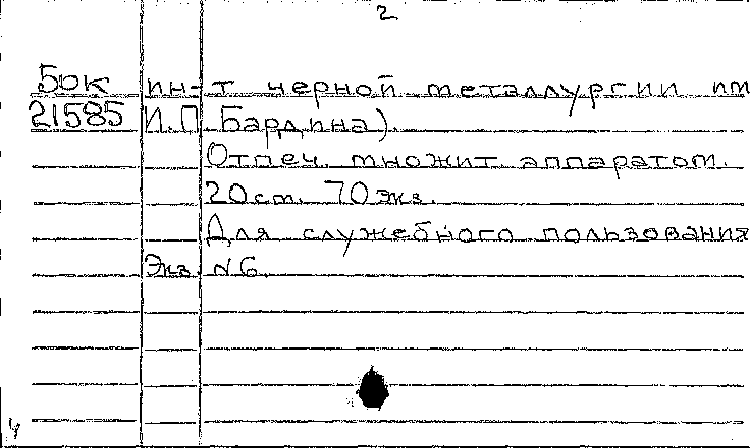 2
50к ин-т черной металлургии им
21585 И.П. Бардина).
Отпеч. множит аппаратом.
20 ст. 70 экз.
Для служебного пользования
Экз. N6.
4